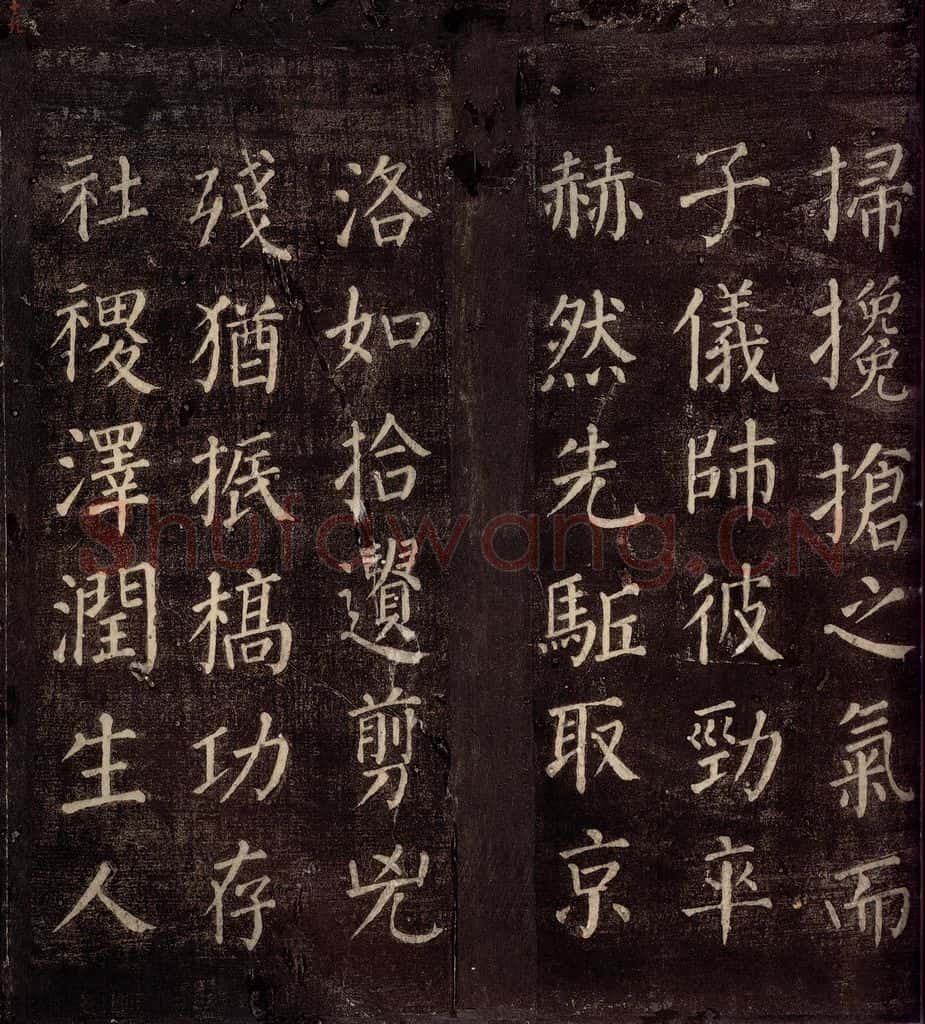 掃攙搶之氣而
子儀師彼勁卒
赫然先駈取京
洛如拾遺剪兇
残猶振槁功存
社稷澤潤生人
Shufawang.CN